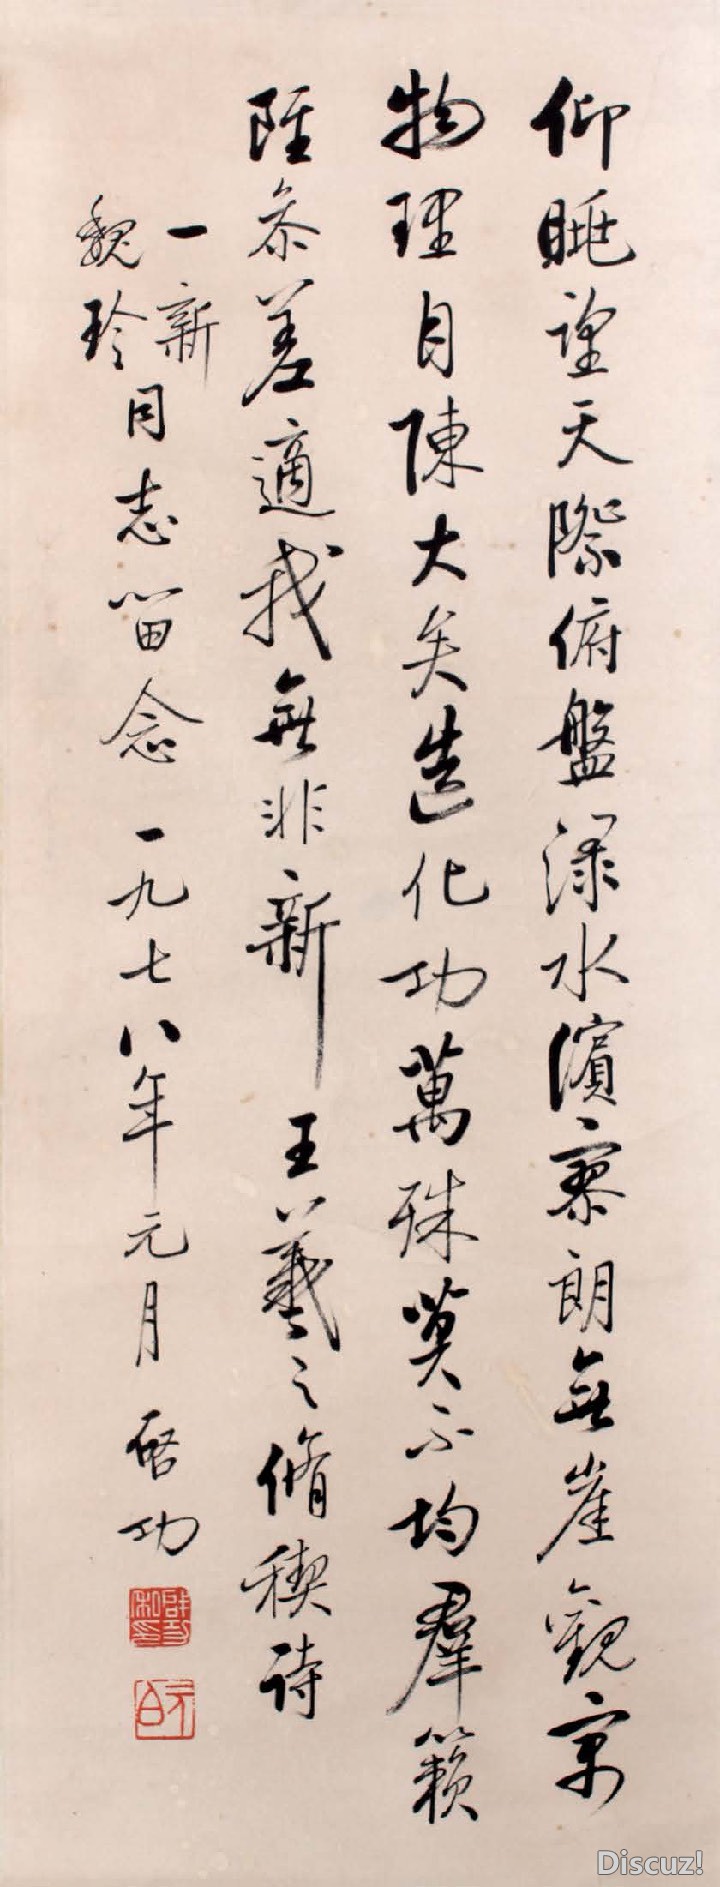 仰眺望天際俯盤淥水濱寥朗無崖觀寓
物理自陳大矣造化功萬殊莫不均羣籟
雖參差適我無非新 王羲之脩稧詩
一新
魏玲
同志留念 一九七八年元月 啓功
Discuz!